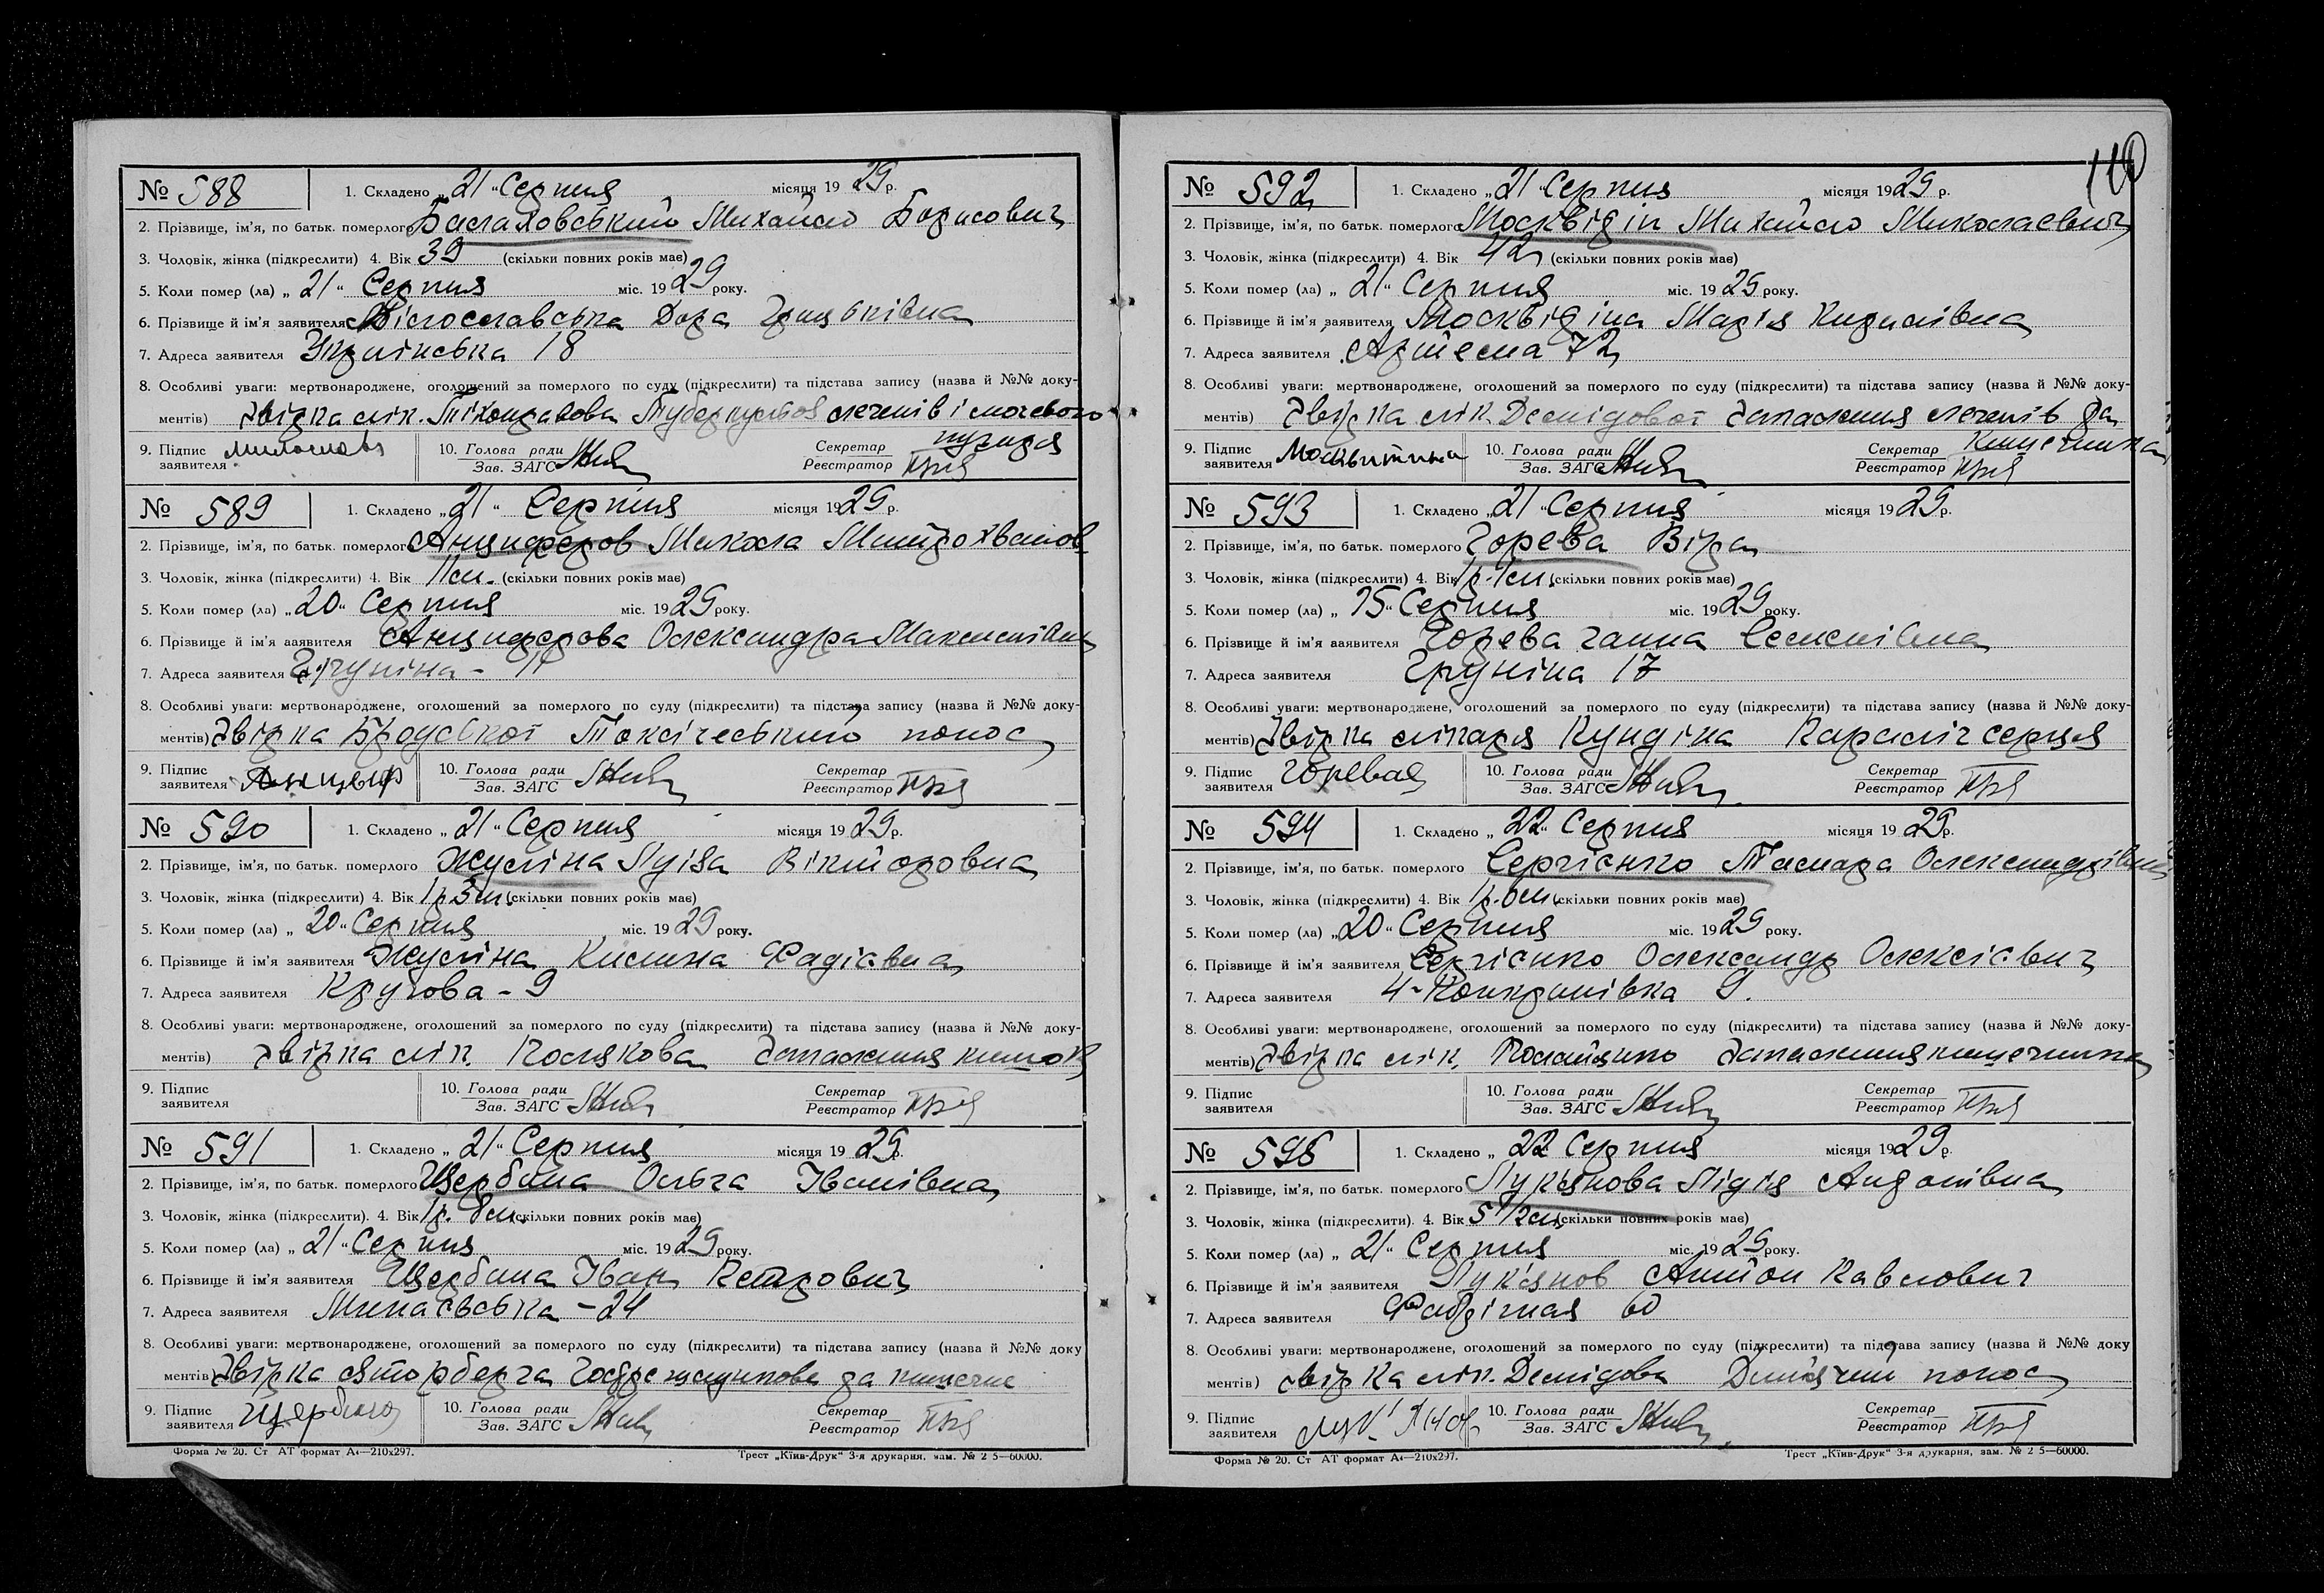 № 588 1. Складено „21“ Серпня місяця 1929 р.
2. Прізвище, ім'я, по батьк. померлого Баслаховський Михайло Борисович
3. Чоловік, жінка (підкреслити) 4. Вік 39 (скільки повних років має)
5. Коли помер (ла) „21“ Серпня міс. 1929 року.
6. Прізвище й ім'я заявителя Дора
7. Адреса заявителя 18
8. Особливі уваги: мертвонароджене, оголошений за померлого по суду (підкреслити) та підстава запису (назва й №№ доку-
ментів) Звірка лік. Туберкульоз легенів і мочевого
пузиря
9. Підпис заявителя 10. Голова ради Зав. ЗАГС Секретар Реєстратор
№ 589 1. Складено „21“ Серпня місяця 1929 р.
2. Прізвище, ім'я, по батьк. померлого Анциферов Микола Митрохванов
3. Чоловік, жінка (підкреслити) 4. Вік 11 м. (скільки повних років має)
5. Коли помер (ла) „20“ Серпня міс. 1929 року.
6. Прізвище й ім'я заявителя Анциферова Олександра Максимівна
7. Адреса заявителя 11
8. Особливі уваги: мертвонароджене, оголошений за померлого по суду (підкреслити) та підстава запису (назва й №№ доку-
ментів) Звірка Бродської Токсічеський понос
9. Підпис заявителя Анциф 10. Голова ради Зав. ЗАГС Секретар Реєстратор
№ 590 1. Складено „21“ Серпня місяця 1929 р.
2. Прізвище, ім'я, по батьк. померлого Жуліна Луіза Вікторовна
3. Чоловік, жінка (підкреслити) 4. Вік 1 р 3 м. (скільки повних років має)
5. Коли помер (ла) „20“ Серпня міс. 1929 року.
6. Прізвище й ім'я заявителя Жуліна Фадієвна
7. Адреса заявителя Кругова - 9
8. Особливі уваги: мертвонароджене, оголошений за померлого по суду (підкреслити) та підстава запису (назва й №№ доку-
ментів) Звірка лік. Полякова Запалення кишок
9. Підпис заявителя 10. Голова ради Зав. ЗАГС Секретар Реєстратор
№ 591 1. Складено „21“ Серпня місяця 1929 р.
2. Прізвище, ім'я, по батьк. померлого Щербина Ольга Іванівна
3. Чоловік, жінка (підкреслити). 4. Вік 1 р. 8 м. (скільки повних років має)
5. Коли помер (ла) „21“ Серпня міс. 1929 року.
6. Прізвище й ім'я заявителя Щербина Іван Петрович
7. Адреса заявителя Минаєвська - 24
8. Особливі уваги: мертвонароджене, оголошений за померлого по суду (підкреслити) та підстава запису (назва й №№ доку
ментів) Звірка
9. Підпис заявителя Щербина 10. Голова ради Зав. ЗАГС Секретар Реєстратор
Форма № 20. Ст АТ формат А4—210х297. Трест „Київ-Друк“ 3-я друкарня, зам. № 2 5—60000.
110
№ 592 1. Складено „21“ Серпня місяця 1929 р.
2. Прізвище, ім'я, по батьк. померлого Москвідін Михайло Миколаєвич
3. Чоловік, жінка (підкреслити) 4. Вік 42 (скільки повних років має)
5. Коли помер (ла) „21“ Серпня міс. 1929 року.
6. Прізвище й ім'я заявителя Москвідіна Марія Кирилівна
7. Адреса заявителя Артема 72
8. Особливі уваги: мертвонароджене, оголошений за померлого по суду (підкреслити) та підстава запису (назва й №№ доку-
ментів) Звірка лік. Демідової Запалення легенів да
кишечника
9. Підпис заявителя Москвитина 10. Голова ради Зав. ЗАГС Секретар Реєстратор
№ 593 1. Складено „21“ Серпня місяця 1929 р.
2. Прізвище, ім'я, по батьк. померлого Горева Віра
3. Чоловік, жінка (підкреслити) 4. Вік 1 р. 1 м. (скільки повних років має)
5. Коли помер (ла) „15“ Серпня міс. 1929 року.
6. Прізвище й ім'я заявителя Горева Ганна Семенівна
7. Адреса заявителя Груніна 17
8. Особливі уваги: мертвонароджене, оголошений за померлого по суду (підкреслити) та підстава запису (назва й №№ доку-
ментів) Звірка лікаря Кундіна Параліч серця
9. Підпис заявителя Горевая 10. Голова ради Зав. ЗАГС Секретар Реєстратор
№ 594 1. Складено „22“ Серпня місяця 1929 р.
2. Прізвище, ім'я, по батьк. померлого Сергієнко Тамара Олександрівна
3. Чоловік, жінка (підкреслити) 4. Вік 1 р. 6 м. (скільки повних років має)
5. Коли помер (ла) „20“ Серпня міс. 1929 року.
6. Прізвище й ім'я заявителя Сергієнко Олександр Олексієвич
7. Адреса заявителя 9.
8. Особливі уваги: мертвонароджене, оголошений за померлого по суду (підкреслити) та підстава запису (назва й №№ доку-
ментів) Звірка лік. Запалення кишечника
9. Підпис заявителя 10. Голова ради Зав. ЗАГС Секретар Реєстратор
№ 595 1. Складено „22“ Серпня місяця 1929 р.
2. Прізвище, ім'я, по батьк. померлого Лук'янова Лідія Андонівна
3. Чоловік, жінка (підкреслити). 4. Вік 5 1/2 м. (скільки повних років має)
5. Коли помер (ла) „21“ Серпня міс. 1929 року.
6. Прізвище й ім'я заявителя Лук'янов Антон Павлович
7. Адреса заявителя Фабрічная 60
8. Особливі уваги: мертвонароджене, оголошений за померлого по суду (підкреслити) та підстава запису (назва й №№ доку
ментів) Звірка лік. Демідова Дитячий понос
9. Підпис заявителя Лук'янов 10. Голова ради Зав. ЗАГС Секретар Реєстратор
Форма № 20. Ст АТ формат А4—210х297. Трест „Київ-Друк“ 3-я друкарня, зам. № 2 5—60000.